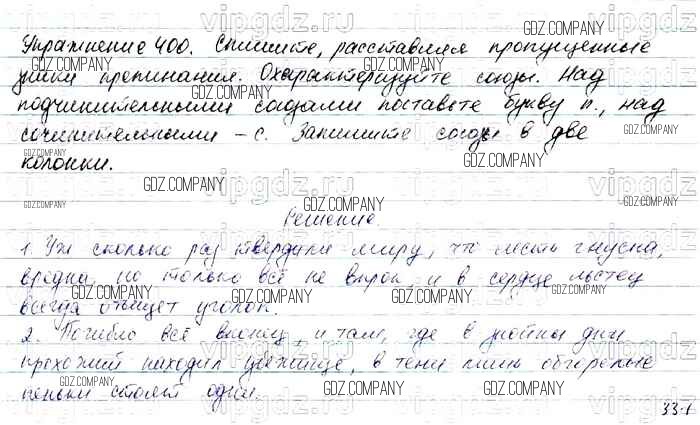 Упражнение 400. Спишите, расставляя пропущенные
знаки препинания. Охарактеризуйте союзы. Над
подчинительными союзами поставьте букву п., над
сочинительными – с. Запишите союзы в две
колонки.
Решение.
1. Уж сколько раз твердили миру, что лесть гнусна,
вредна, но только всё не впрок, и в сердце льстец
всегда отыщет уголок.
2. Погибло всё вконец, и там, где в знойны дни
прохожий находил убежище, в тени лишь обгорелые
пеньки стоят одни.
GDZ.COMPANY
vipgdz.ru
331